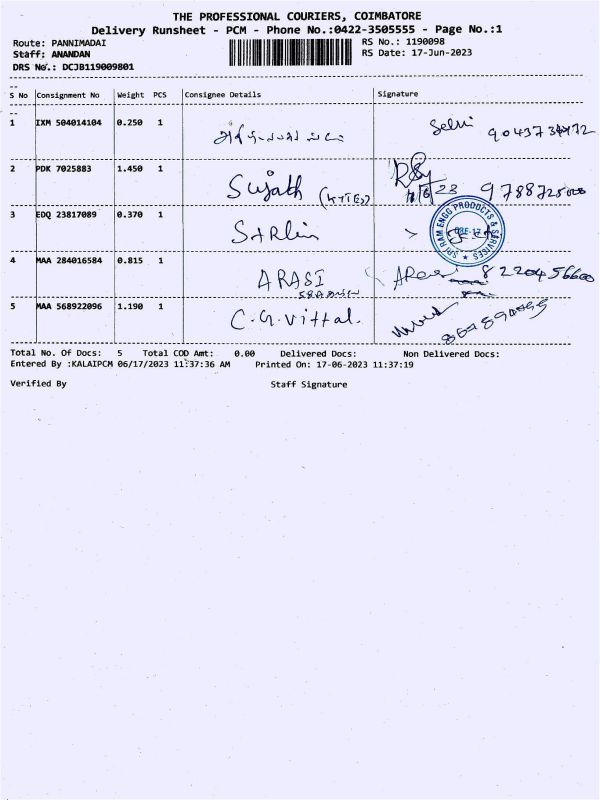 THE PROFESSIONAL COURIERS, COIMBATORE
Delivery Runsheet - PCM - Phone No.:0422-3505555 - Page No.:1
Route: PANNIMADAI
Staff: ANANDAN
DRS No.: DCJB119009801
RS No.: 1190098
RS Date: 17-Jun-2023
S No Consignment No Weight PCS Consignee Details Signature
1 IXM 504014104 0.250 1 Selvi
2 PDK 7025883 1.450 1 Sujath (KYTES) 9788725000
3 EDQ 23817089 0.370 1
SRI RAM ENGG PRODUCTS & SERVICES
CBE-17
4 MAA 284016584 0.815 1 ARASI 8220456600
5 MAA 568922096 1.190 1 C.G.Vittal.
Total No. Of Docs: 5 Total COD Amt: 0.00 Delivered Docs: Non Delivered Docs:
Entered By :KALAIPCM 06/17/2023 11:37:36 AM Printed On: 17-06-2023 11:37:19
Verified By Staff Signature